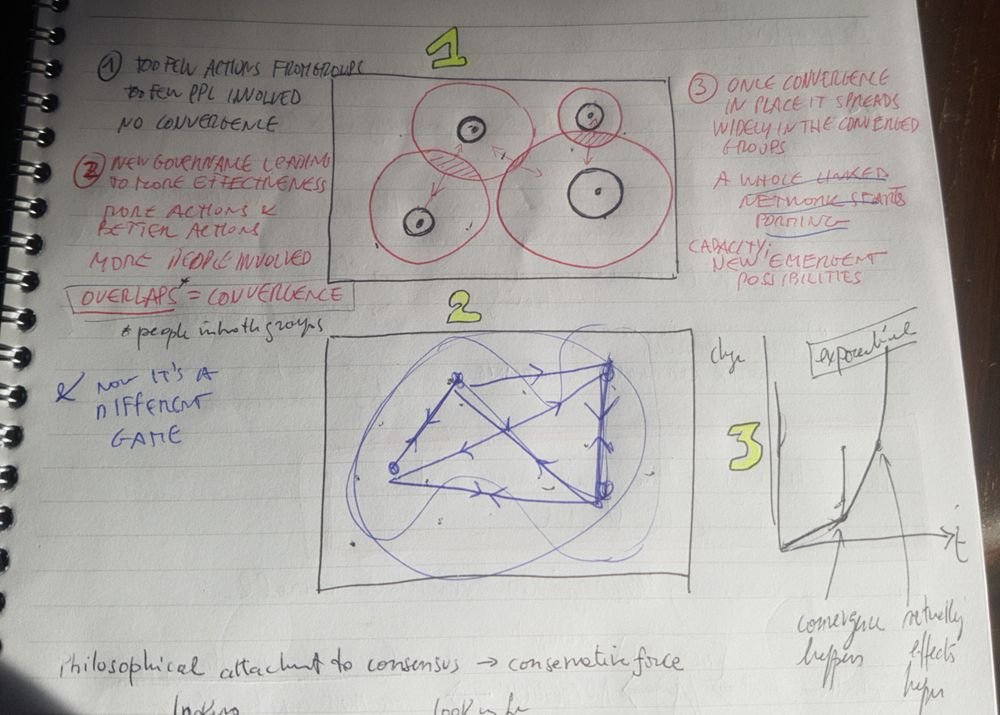 1
① TOO FEW ACTIONS FROM GROUPS
TOO FEW PPL INVOLVED
NO CONVERGENCE
② NEW GOVERNANCE LEADING
TO MORE EFFECTIVENESS
MORE ACTIONS &
BETTER ACTIONS
MORE PEOPLE INVOLVED
OVERLAPS* = CONVERGENCE
* people in both groups
③ ONCE CONVERGENCE
IN PLACE IT SPREADS
WIDELY IN THE CONVERGED
GROUPS
A WHOLE LINKED
NETWORK STARTS
FORMING
CAPACITY;
NEW EMERGENT
POSSIBILITIES
2
& NOW IT'S A
DIFFERENT
GAME
3
exponential
t
convergence
happens
network
effects
happen
Philosophical attachment to consensus → conservative force
looking